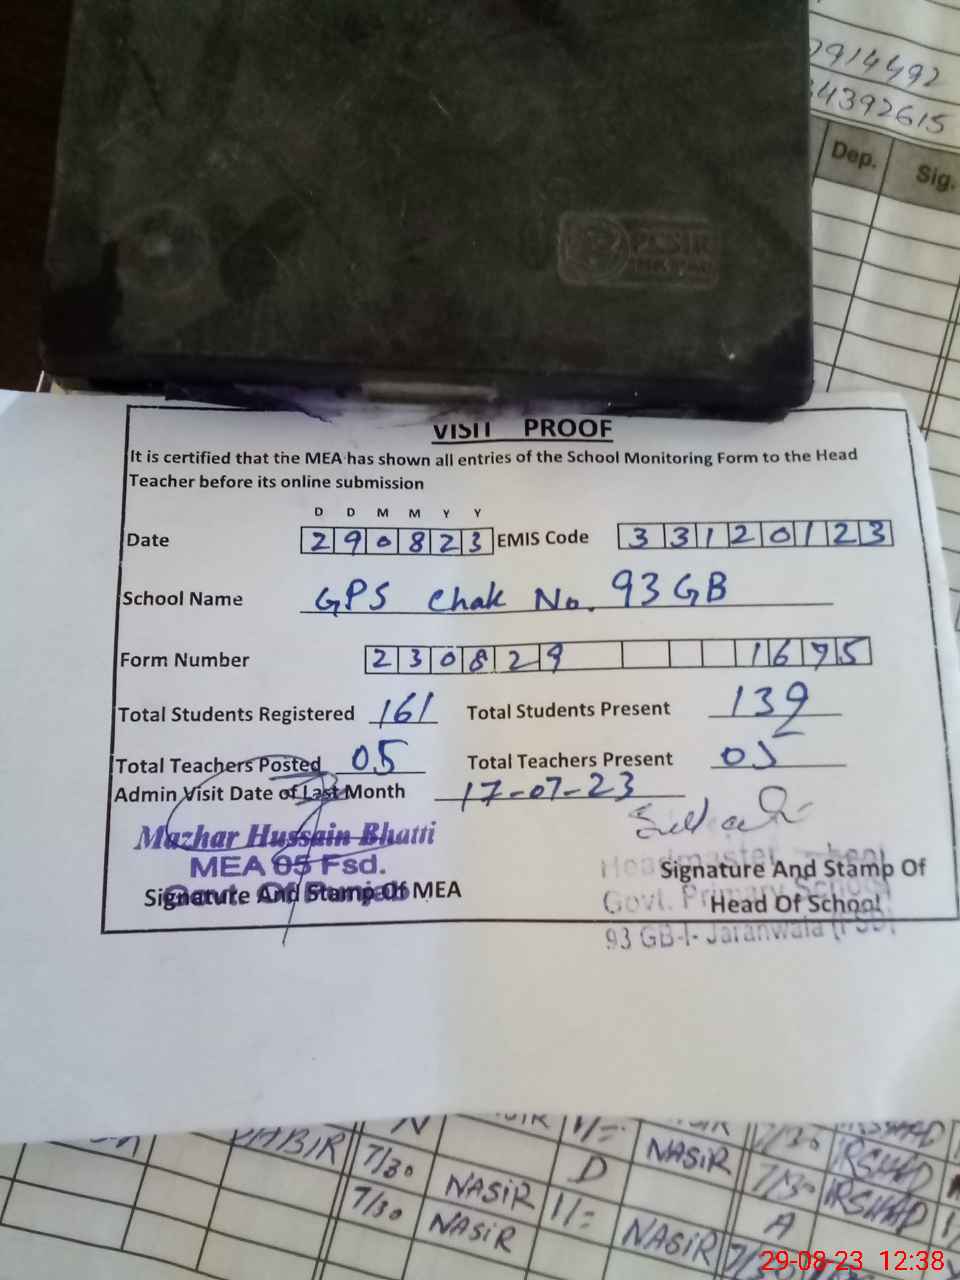 7914492
4392615
Dep. Sig.
VISIT PROOF
It is certified that the MEA has shown all entries of the School Monitoring Form to the Head
Teacher before its online submission
D D M M Y Y
Date 290823 EMIS Code 33120123
School Name GPS Chak No. 93 GB
Form Number 230829 1675
Total Students Registered 161 Total Students Present 139
Total Teachers Posted 05 Total Teachers Present 05
Admin Visit Date of Last Month 17-07-23
Mazhar Hussain Bhatti
MEA 05 Fsd.
Govt. Of Punjab
Signature And Stamp Of MEA
Headmaster
Signature And Stamp Of
Govt. Primary School
Head Of School
93 GB-I- Jaranwala (FSD)
NASIR 7/30 IRSHAD
7/30 NASIR D NASIR 7/30 IRSHAD
7/30 NASIR 1/= NASIR A
29-08-23 12:38